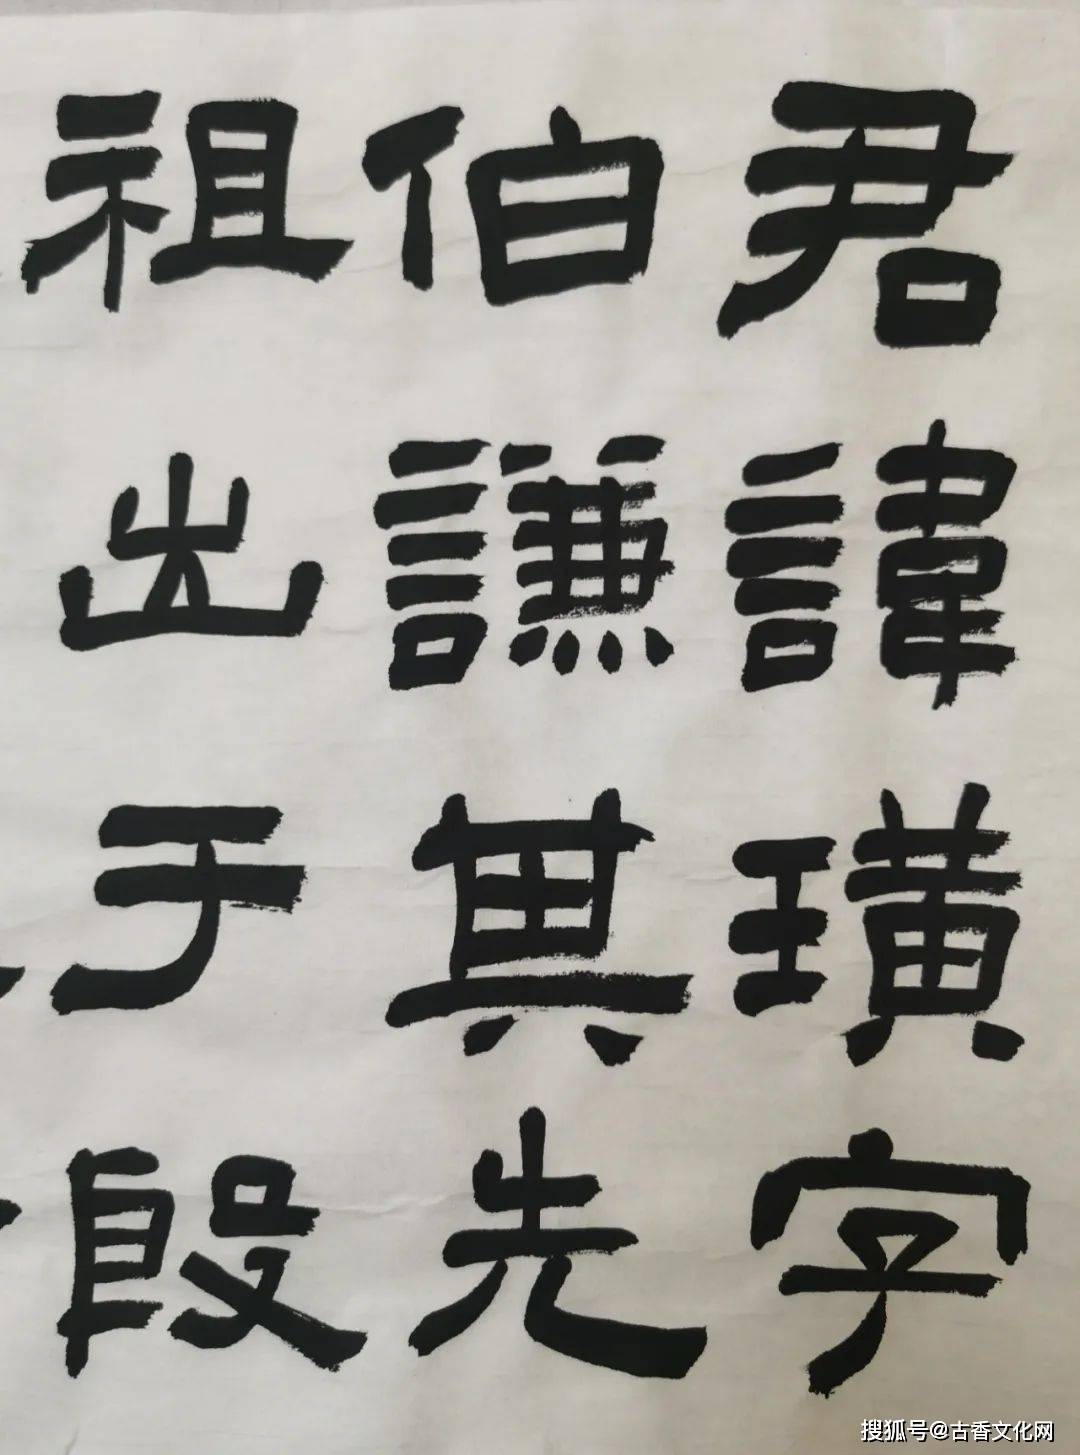 君諱璜字
伯謙其先
祖出于殷
搜狐号@古香文化网